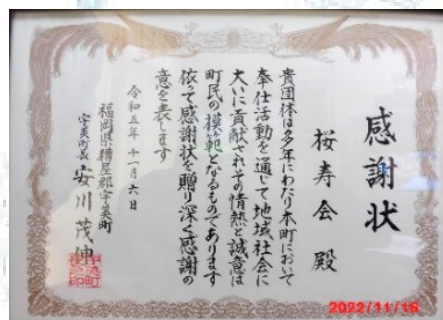 感謝状
桜寿会 殿
貴団体は多年にわたり本町において
奉仕活動を通して地域社会に
大いに貢献されその情熱と誠意は
町民の模範となるものであります
依って感謝状を贈り深く感謝の
意を表します
令和五年十一月六日
福岡県糟屋郡宇美町
宇美町長 安川茂伸
2022/11/16